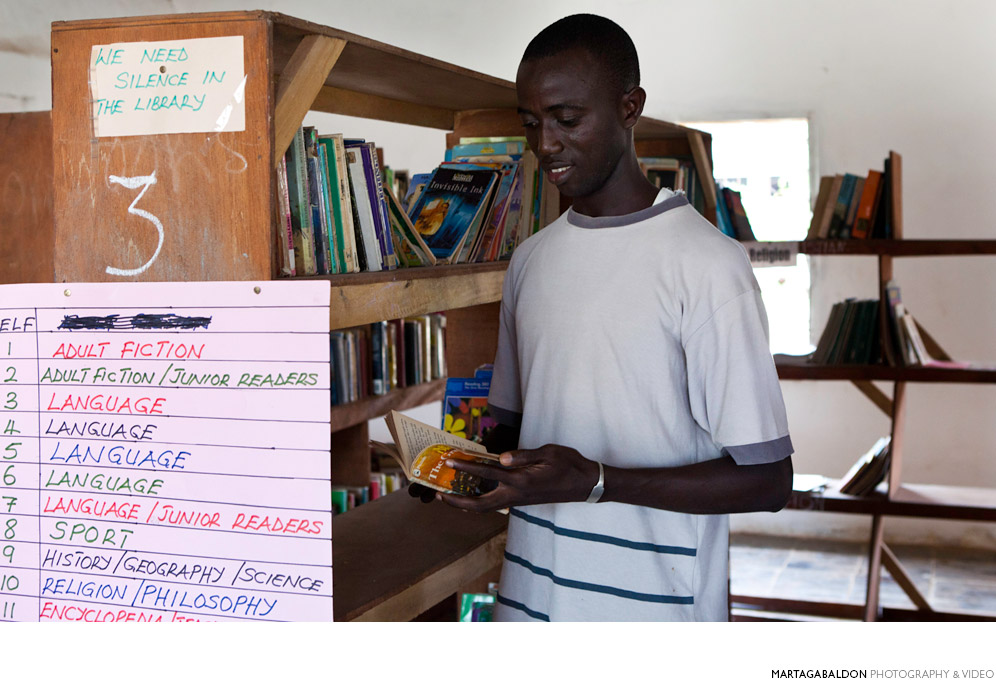 WE NEED
SILENCE IN
THE LIBRARY
3
Invisible Ink
Religion
ELF
1 ADULT FICTION
2 ADULT FICTION/JUNIOR READERS
3 LANGUAGE
4 LANGUAGE
5 LANGUAGE
6 LANGUAGE
7 LANGUAGE/JUNIOR READERS
8 SPORT
9 HISTORY/GEOGRAPHY/SCIENCE
10 RELIGION/PHILOSOPHY
11 ENCYCLOPEDIA
MARTAGABALDON PHOTOGRAPHY & VIDEO